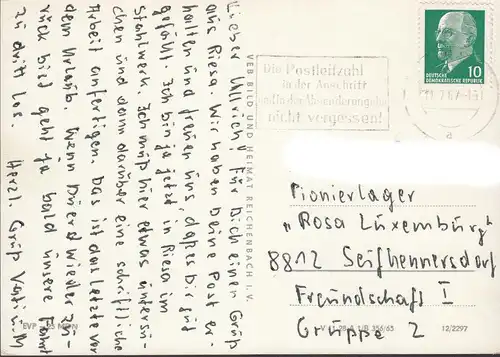 Lieber Ullrich! Für Dich einen Gruß
aus Riesa. Wir haben Deine Post er-
halten und freuen uns, daß es Dir gut
gefällt. Ich bin ja jetzt in Riesa im
Stahlwerk. Ich muß hier etwas untersu-
chen und dann darüber eine schriftliche
Arbeit anfertigen. Das ist das letzte vor
dem Urlaub. Wenn Du erst wieder zu-
rück bist geht ja bald unsere Fahrt
zu dritt los. Herzl. Gruß Vati u. M
VEB BILD UND HEIMAT REICHENBACH I. V.
EVP
Die Postleitzahl
in der Anschrift
und in der Absenderangabe
nicht vergessen!
10
DEUTSCHE
DEMOKRATISCHE REPUBLIK
a
Pionierlager
"Rosa Luxemburg"
8812 Seifhennersdorf
Freundschaft I
Gruppe 2
356/65
12/2297